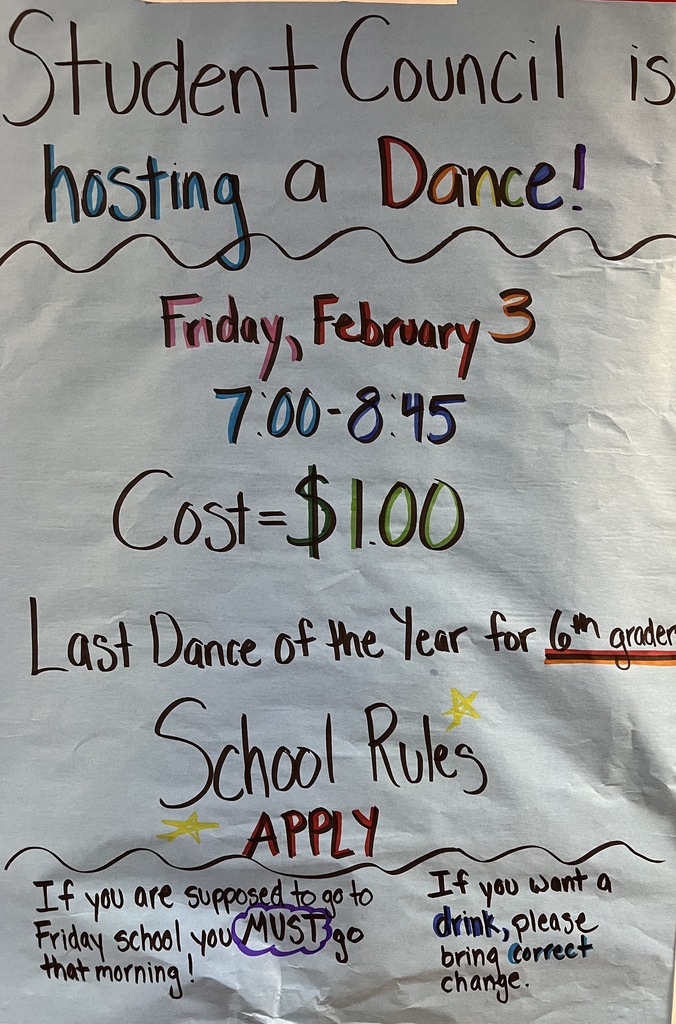 Student Council is
hosting a Dance!
Friday, February 3
7:00-8:45
Cost=$1.00
Last Dance of the Year for 6th grader
School Rules
APPLY
If you are supposed to go to
Friday school you MUST go
that morning!
If you want a
drink, please
bring correct
change.